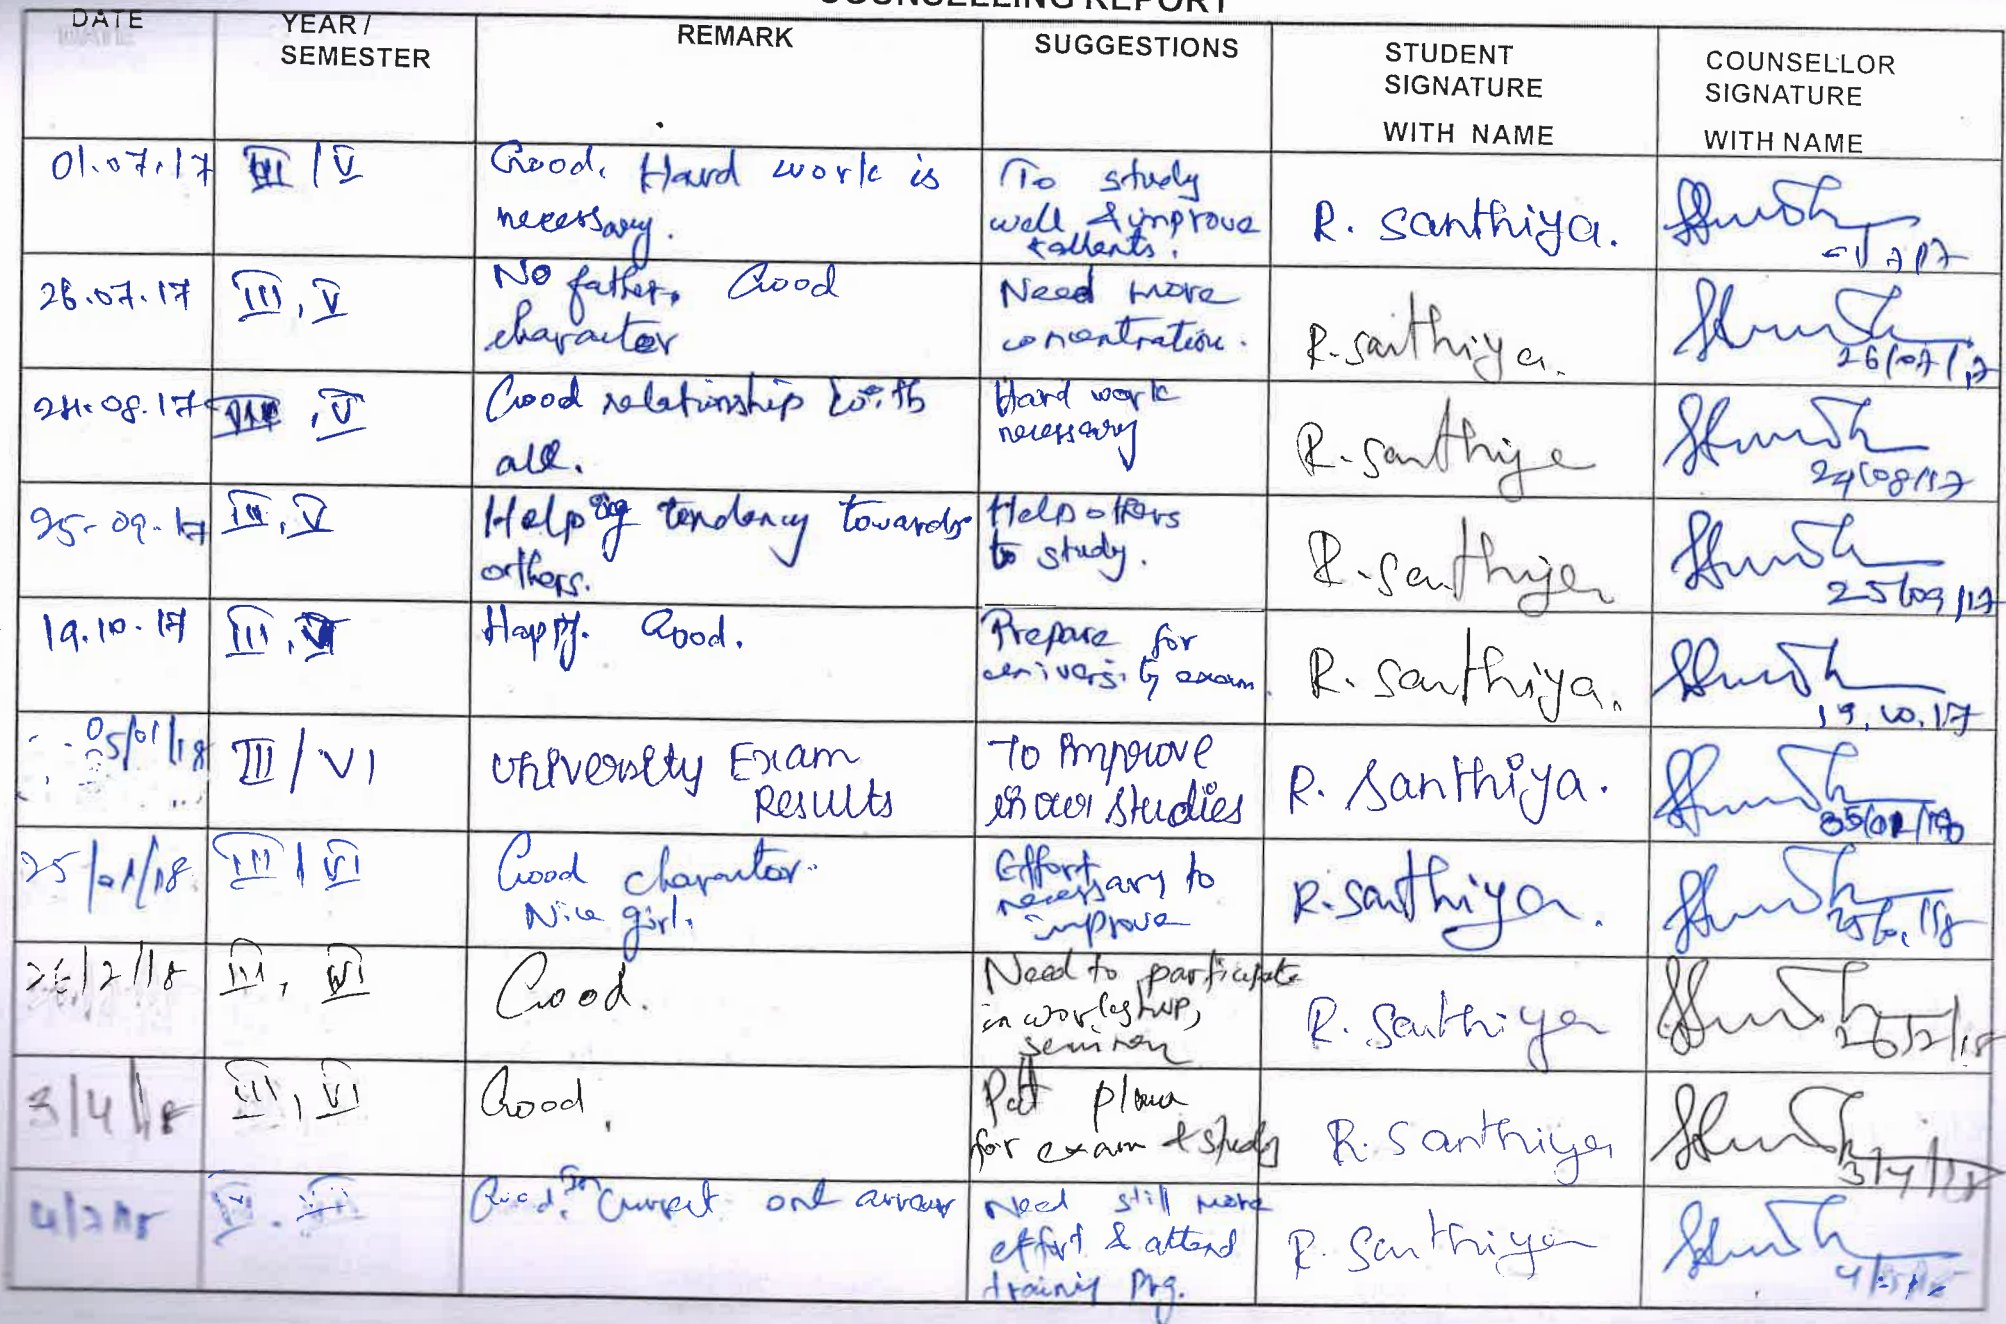 COUNSELLING REPORT
DATE
YEAR /
SEMESTER
REMARK
SUGGESTIONS
STUDENT
SIGNATURE
WITH NAME
COUNSELLOR
SIGNATURE
WITH NAME
01.07.17
III / V
Good. Hard work is
necessary.
To study
well & improve
tallents.
R. Santhiya.
26.07.17
III, V
No father. Good
character
Need more
concentration.
R. Santhiya.
26/07/17
24.08.17
III, V
Good relationship with
all.
Hard work
necessary
R. Santhiya
24/08/17
25-09-17
III, V
Helping tendency towards
orthers.
Help others
to study.
R. Santhiya
25/09/17
19.10.17
III, V
Happy. Good.
Prepare for
university exam.
R. Santhiya.
19.10.17
05/01/18
III / VI
University Exam
Results
To Improve
in our studies
R. Santhiya.
05/01/18
25/01/18
III / VI
Good character.
Nice girl.
Effort
necessary to
improve
R. Santhiya.
26/2/18
III, VI
Good.
Need to participate
in workshop,
seminar
R. Santhiya
26/2/18
3/4/18
III, VI
Good.
Put plan
for exam & study
R. Santhiya
3/4/18
Good. Current one arrear
Need still more
effort & attend
training Prg.
R. Santhiya